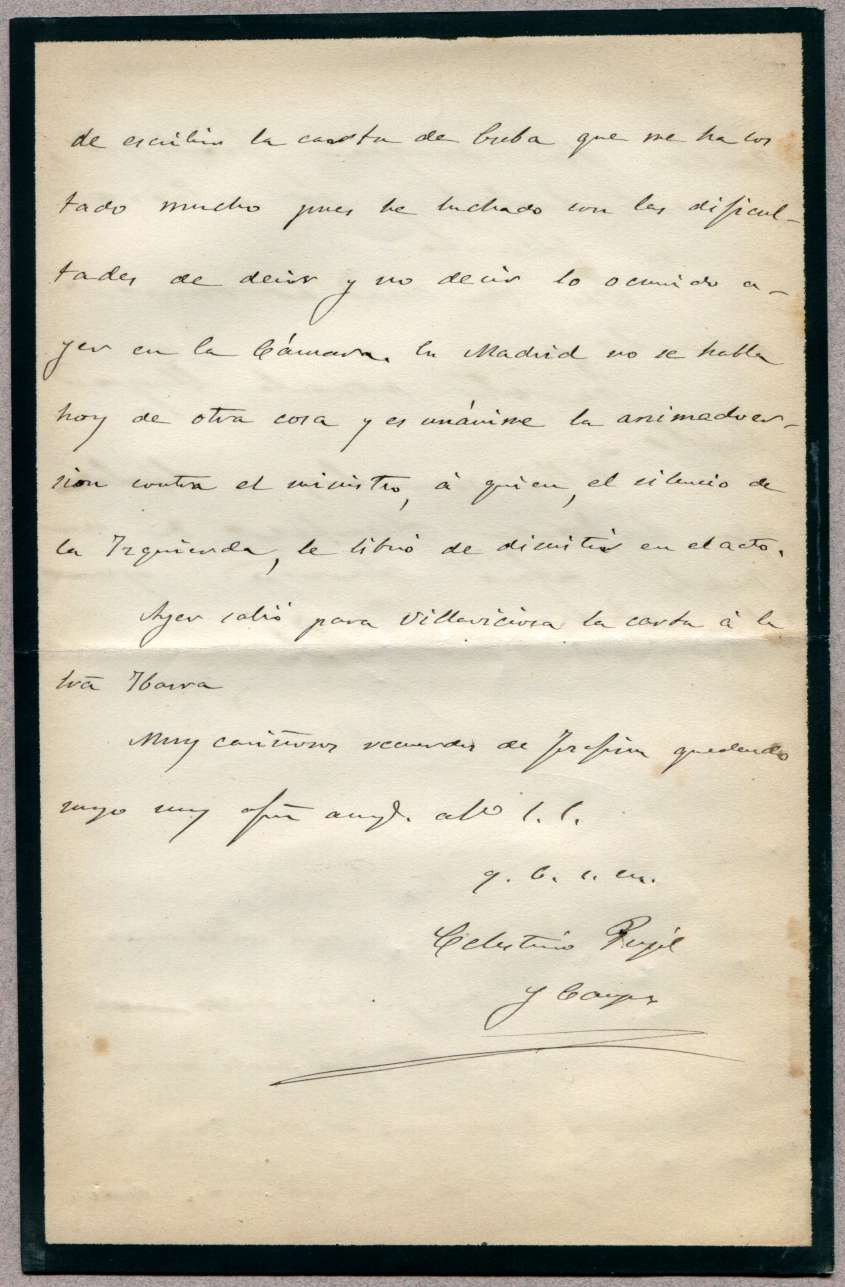 de escribir la carta de Cuba que me ha cos
tado mucho pues he luchado con las dificul-
tades de decir y no decir lo ocurrido a-
yer en la Cámara. En Madrid no se habla
hoy de otra cosa y es unánime la animadver-
sion contra el ministro, á quien, el silencio de
la Izquierda, le libró de dimitir en el acto.
Ayer salió para Villaviciosa la carta á la
Srā Ibarra
Muy cariñosos recuerdos de Josefina quedando
suyo muy afm̄ amgo. af\o S. S.
q. b. s. m.
Celestino Pujol
y Camps